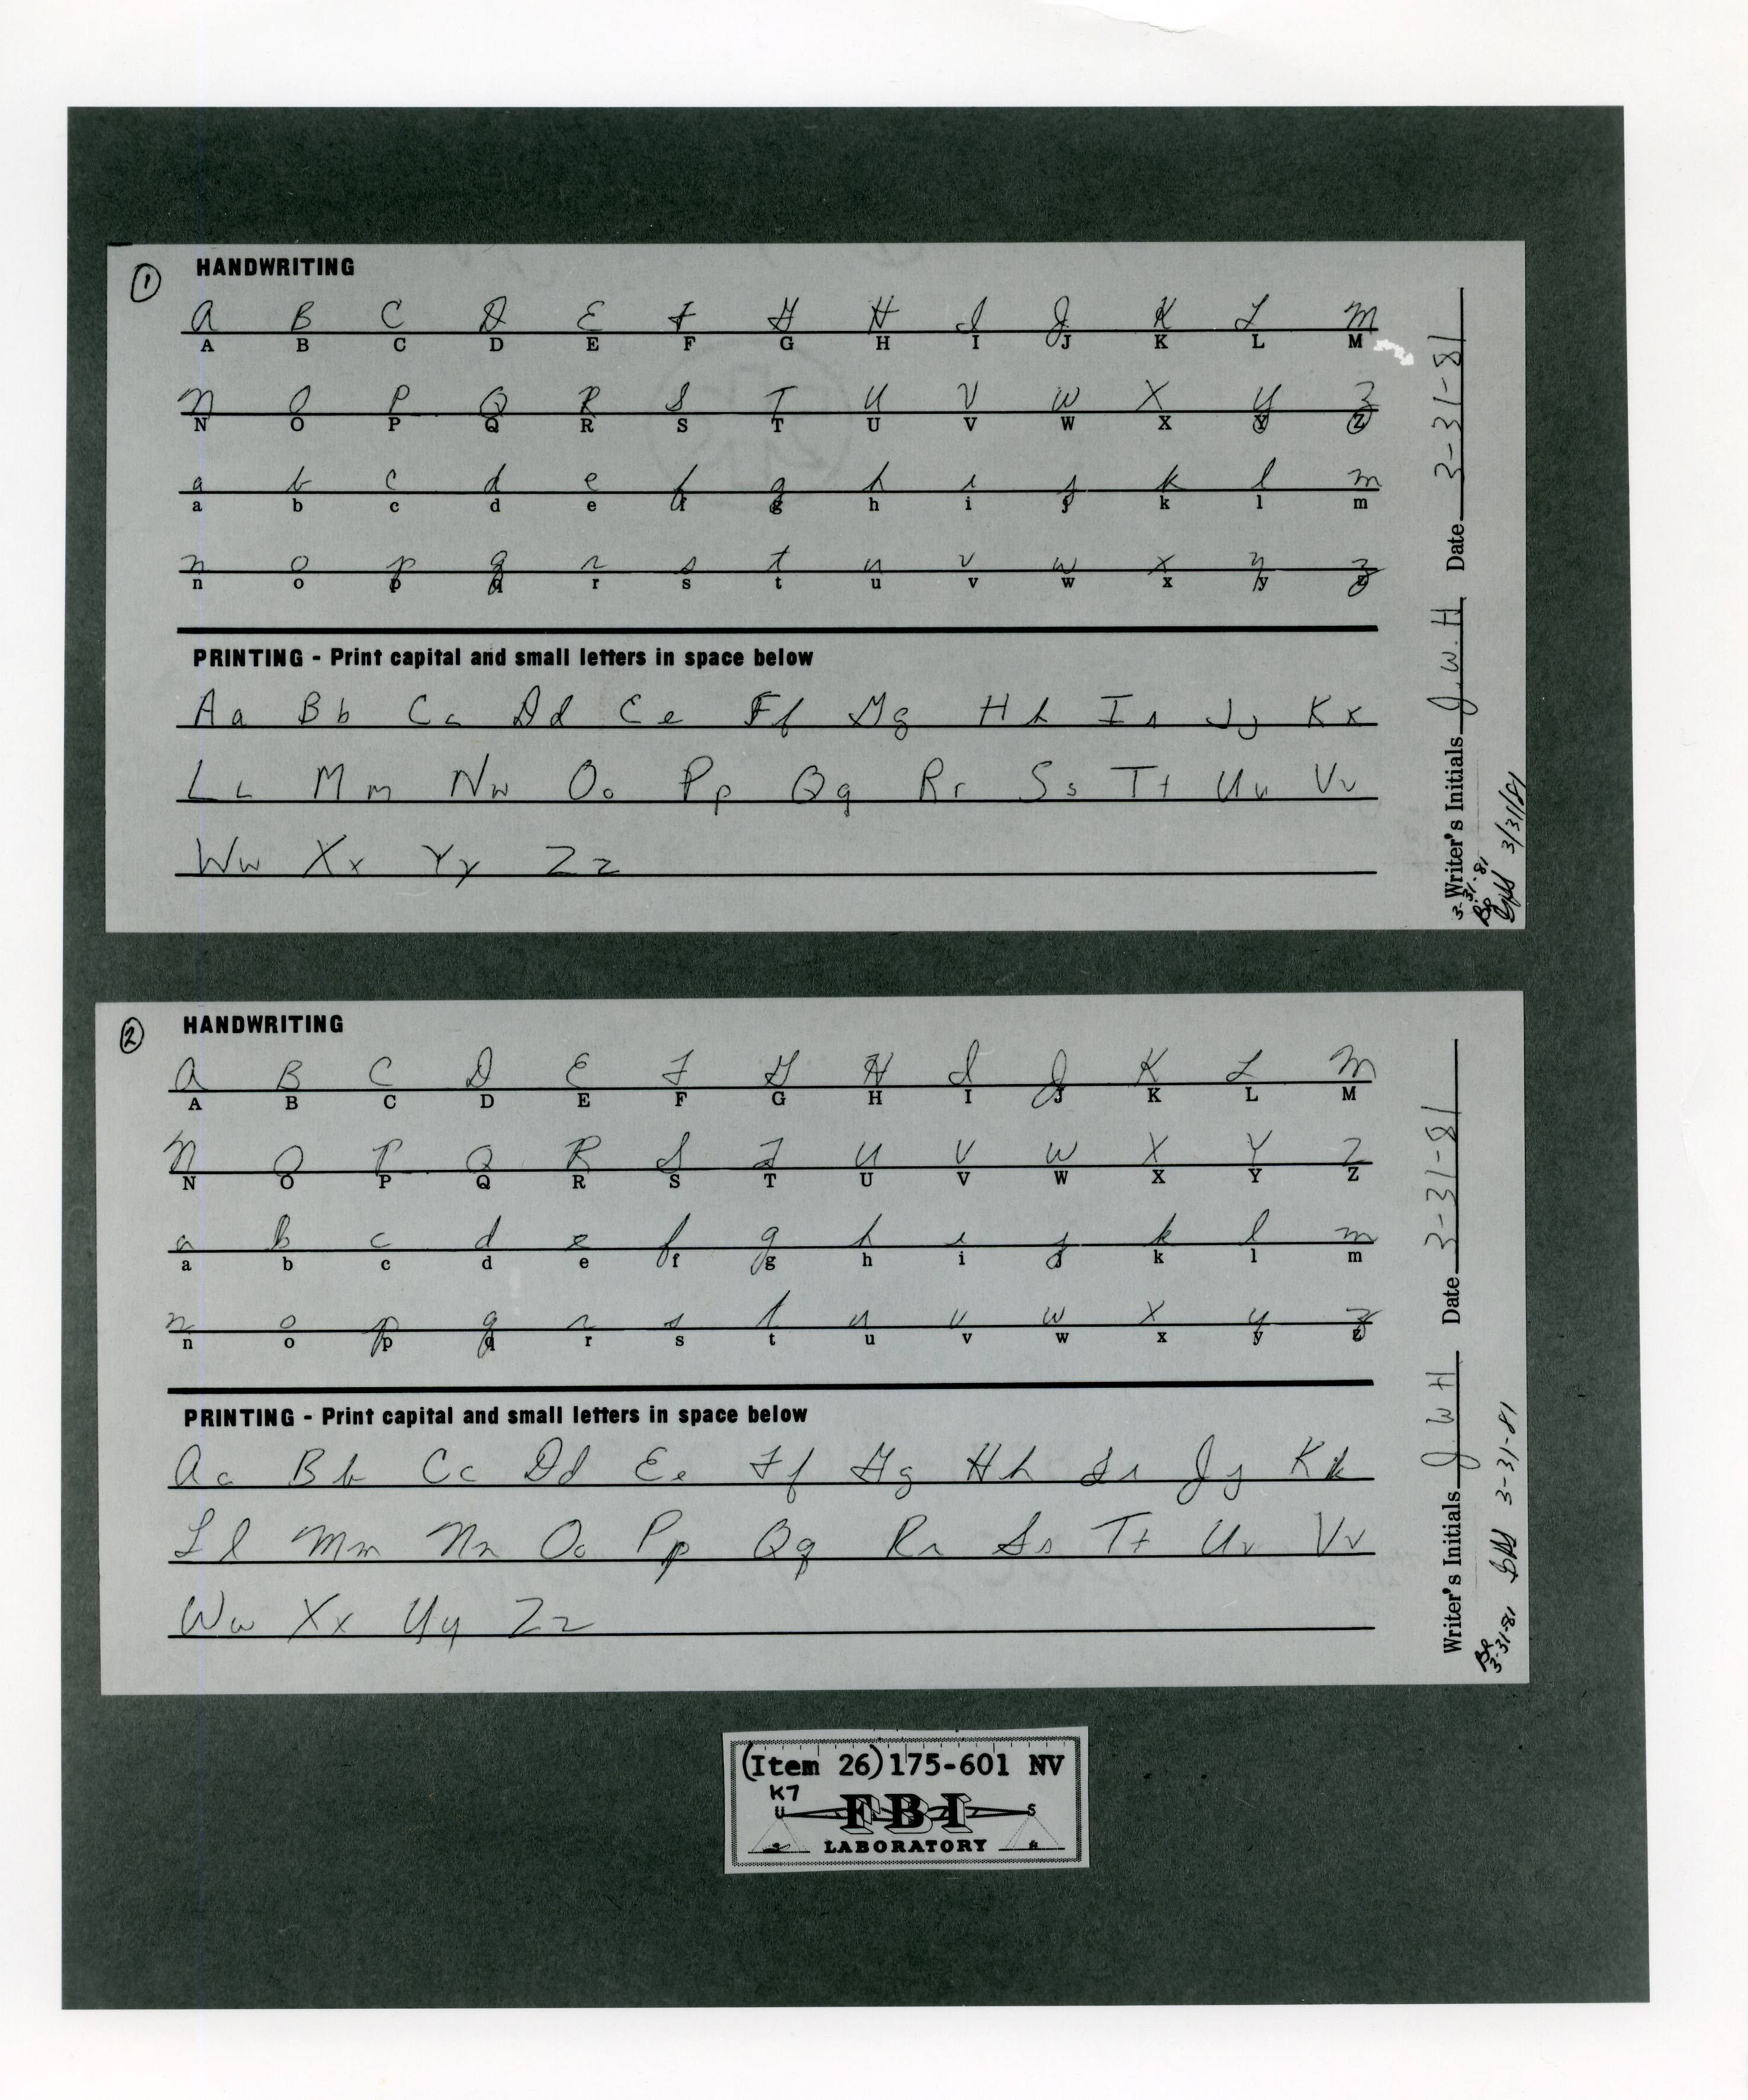 ①
HANDWRITING
A B C D E F G H I J K L M
A B C D E F G H I J K L M
N O P Q R S T U V W X Y Z
N O P Q R S T U V W X Y Z
a b c d e f g h i j k l m
a b c d e f g h i j k l m
n o p q r s t u v w x y z
n o p q r s t u v w x y z
PRINTING - Print capital and small letters in space below
Aa Bb Cc Dd Ee Ff Gg Hh Ii Jj Kk
LL Mm Nn Oo Pp Qq Rr Ss Tt Uu Vv
Ww Xx Yy Zz
Writer's Initials J. W. H Date 3-31-81
3-31-81
Bp
3/31/81
②
HANDWRITING
A B C D E F G H I J K L M
A B C D E F G H I J K L M
N O P Q R S T U V W X Y Z
N O P Q R S T U V W X Y Z
a b c d e f g h i j k l m
a b c d e f g h i j k l m
n o p q r s t u v w x y z
n o p q r s t u v w x y z
PRINTING - Print capital and small letters in space below
Aa Bb Cc Dd Ee Ff Gg Hh Ii Jj Kk
Ll Mm Nn Oo Pp Qq Rr Ss Tt Uu Vv
Ww Xx Yy Zz
Writer's Initials J W H Date 3-31-81
Bp
3-31-81
3-31-81
(Item 26)175-601 NV
K7
U S
FBI
LABORATORY